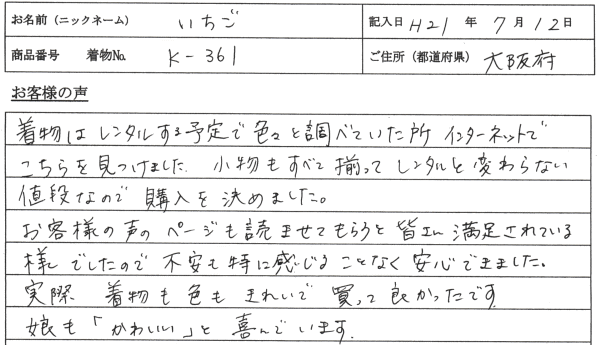 お名前（ニックネーム） いちご 記入日 H21 年 7月 12日
商品番号 着物No. K-361 ご住所（都道府県） 大阪府
お客様の声
着物はレンタルする予定で色々と調べていた所 インターネットで
こちらを見つけました。小物もすべて揃ってレンタルと変わらない
値段なので購入を決めました。
お客様の声のページも読ませてもらうと皆さん満足されている
様でしたので不安も特に感じることなく安心できました。
実際 着物も色もきれいで買って良かったです。
娘も「かわいい」と喜んでいます。